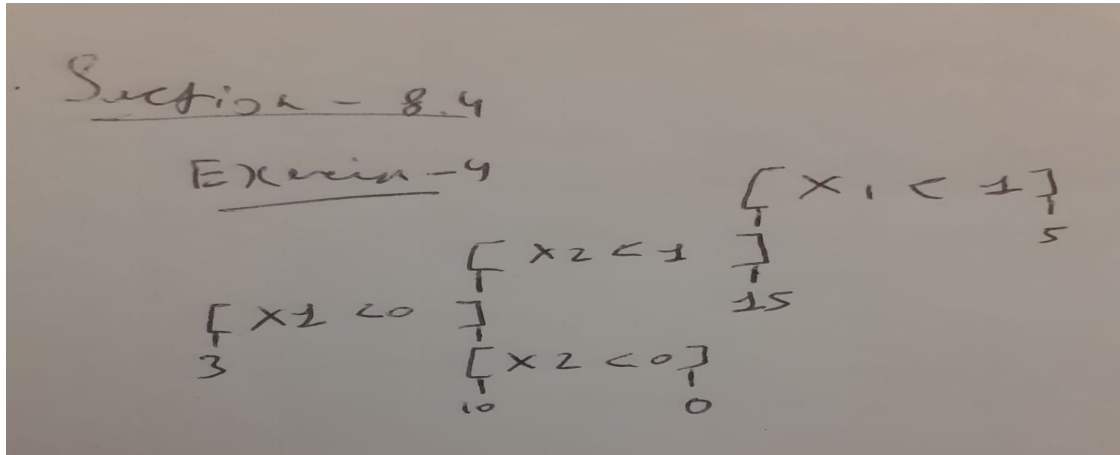 Section - 8.4
Exercise - 4
[ X1 < 1 ]
5
[ X2 < 1 ]
15
[ X1 < 0 ]
3
[ X2 < 0 ]
10 0